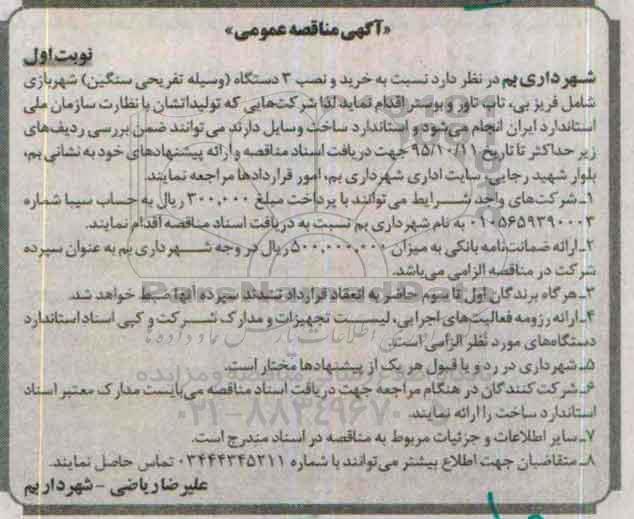 «آگهی مناقصه عمومی»
نوبت اول
شهرداری بم در نظر دارد نسبت به خرید و نصب ۳ دستگاه (وسیله تفریحی سنگین) شهربازی
شامل فریز بی، تاپ تاور و بوستر اقدام نماید لذا شرکت‌هایی که تولیداتشان با نظارت سازمان ملی
استاندارد ایران انجام می‌شود و استاندارد ساخت وسایل دارند می توانند ضمن بررسی ردیف‌های
زیر حداکثر تا تاریخ ۹۵/۱۰/۱۱ جهت دریافت اسناد مناقصه و ارائه پیشنهادهای خود به نشانی بم،
بلوار شهید رجایی، سایت اداری شهرداری بم، امور قراردادها مراجعه نمایند.
۱ـ شرکت‌های واجد شرایط می توانند با پرداخت مبلغ ۳۰۰,۰۰۰ ریال به حساب سیبا شماره
۰۱۰۵۶۵۹۳۹۰۰۰۳ به نام شهرداری بم نسبت به دریافت اسناد مناقصه اقدام نمایند.
۲ـ ارائه ضمانت‌نامه بانکی به میزان ۵۰۰,۰۰۰,۰۰۰ ریال در وجه شهرداری بم به عنوان سپرده
شرکت در مناقصه الزامی می‌باشد.
۳ـ هرگاه برندگان اول تا سوم حاضر به انعقاد قرارداد نشدند سپرده آنها ضبط خواهد شد.
۴ـ ارائه رزومه فعالیت‌های اجرایی، لیست تجهیزات و مدارک شرکت و کپی اسناد استاندارد
دستگاه‌های مورد نظر الزامی است.
۵ـ شهرداری در رد و یا قبول هر یک از پیشنهادها مختار است.
۶ـ شرکت کنندگان در هنگام مراجعه جهت دریافت اسناد مناقصه می‌بایست مدارک معتبر اسناد
استاندارد ساخت را ارائه نمایند.
۷ـ سایر اطلاعات و جزئیات مربوط به مناقصه در اسناد مندرج است.
۸ـ متقاضیان جهت اطلاع بیشتر می‌توانند با شماره ۰۳۴۴۴۳۴۵۲۱۱ تماس حاصل نمایند.
علیرضا ریاضی - شهردار بم
ParsNamadData
۰۲۱-۸۸۳۴۹۶۷۰